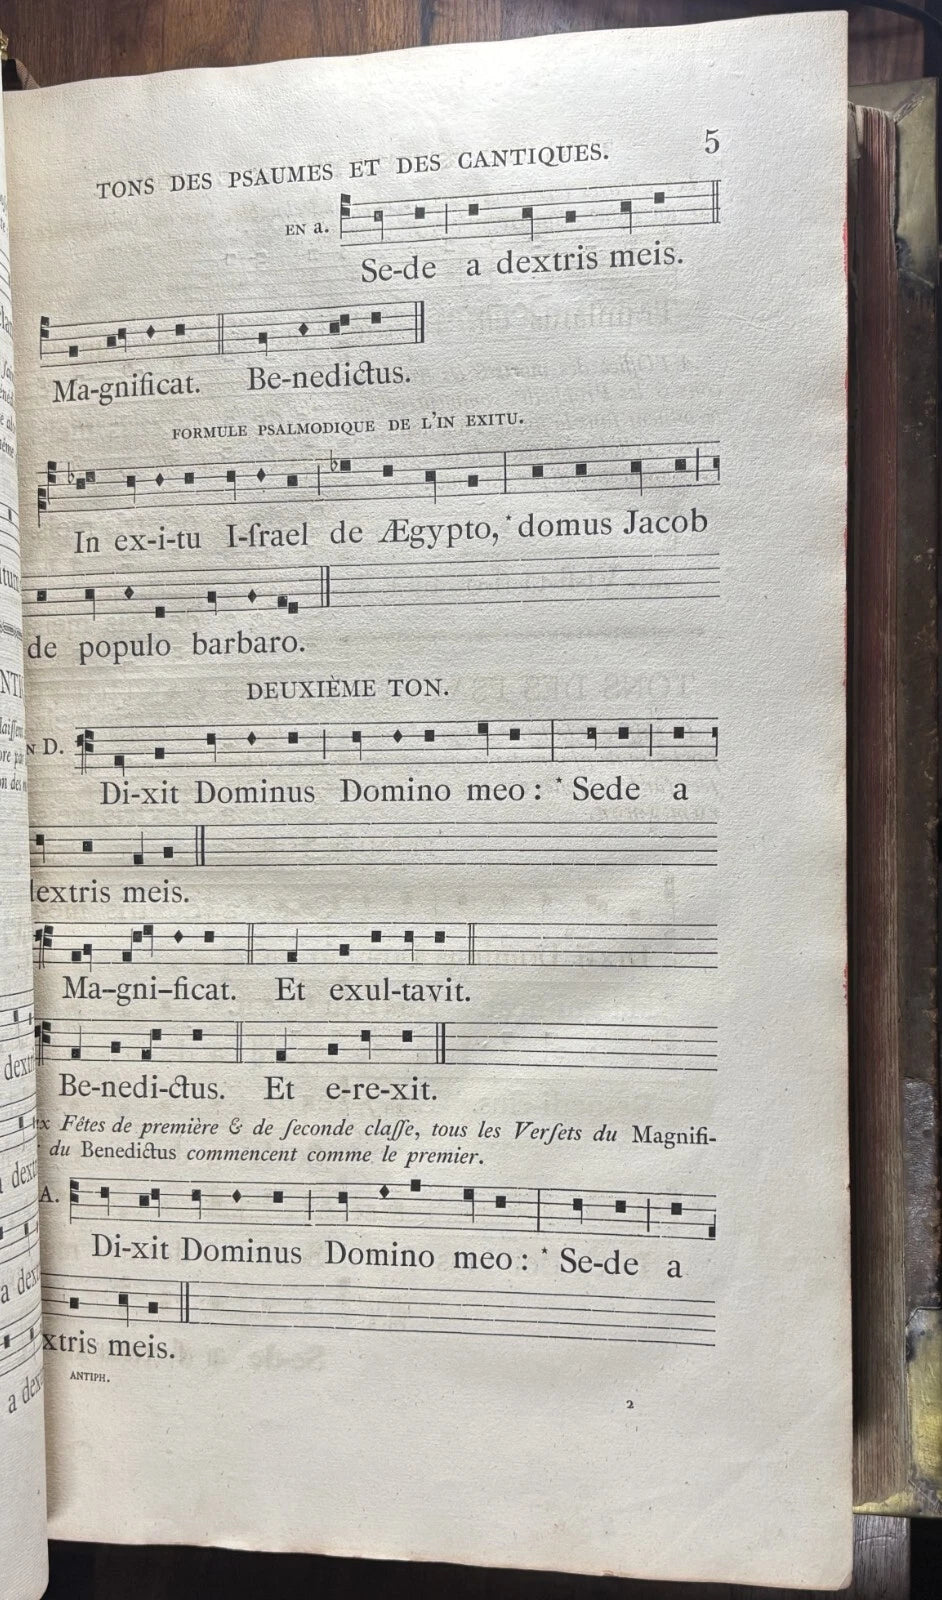 TONS DES PSAUMES ET DES CANTIQUES. 5
EN a.
Se-de a dextris meis.
Ma-gnificat. Be-nedictus.
FORMULE PSALMODIQUE DE L'IN EXITU.
In ex-i-tu I-ſrael de Ægypto, * domus Jacob
de populo barbaro.
DEUXIÈME TON.
N D.
Di-xit Dominus Domino meo : * Sede a
dextris meis.
Ma-gni-ficat. Et exul-tavit.
Be-nedi-ctus. Et e-re-xit.
x Fêtes de première & de ſeconde claſſe, tous les Verſets du Magnifi-
du Benedictus commencent comme le premier.
A.
Di-xit Dominus Domino meo : * Se-de a
xtris meis.
ANTIPH. 2